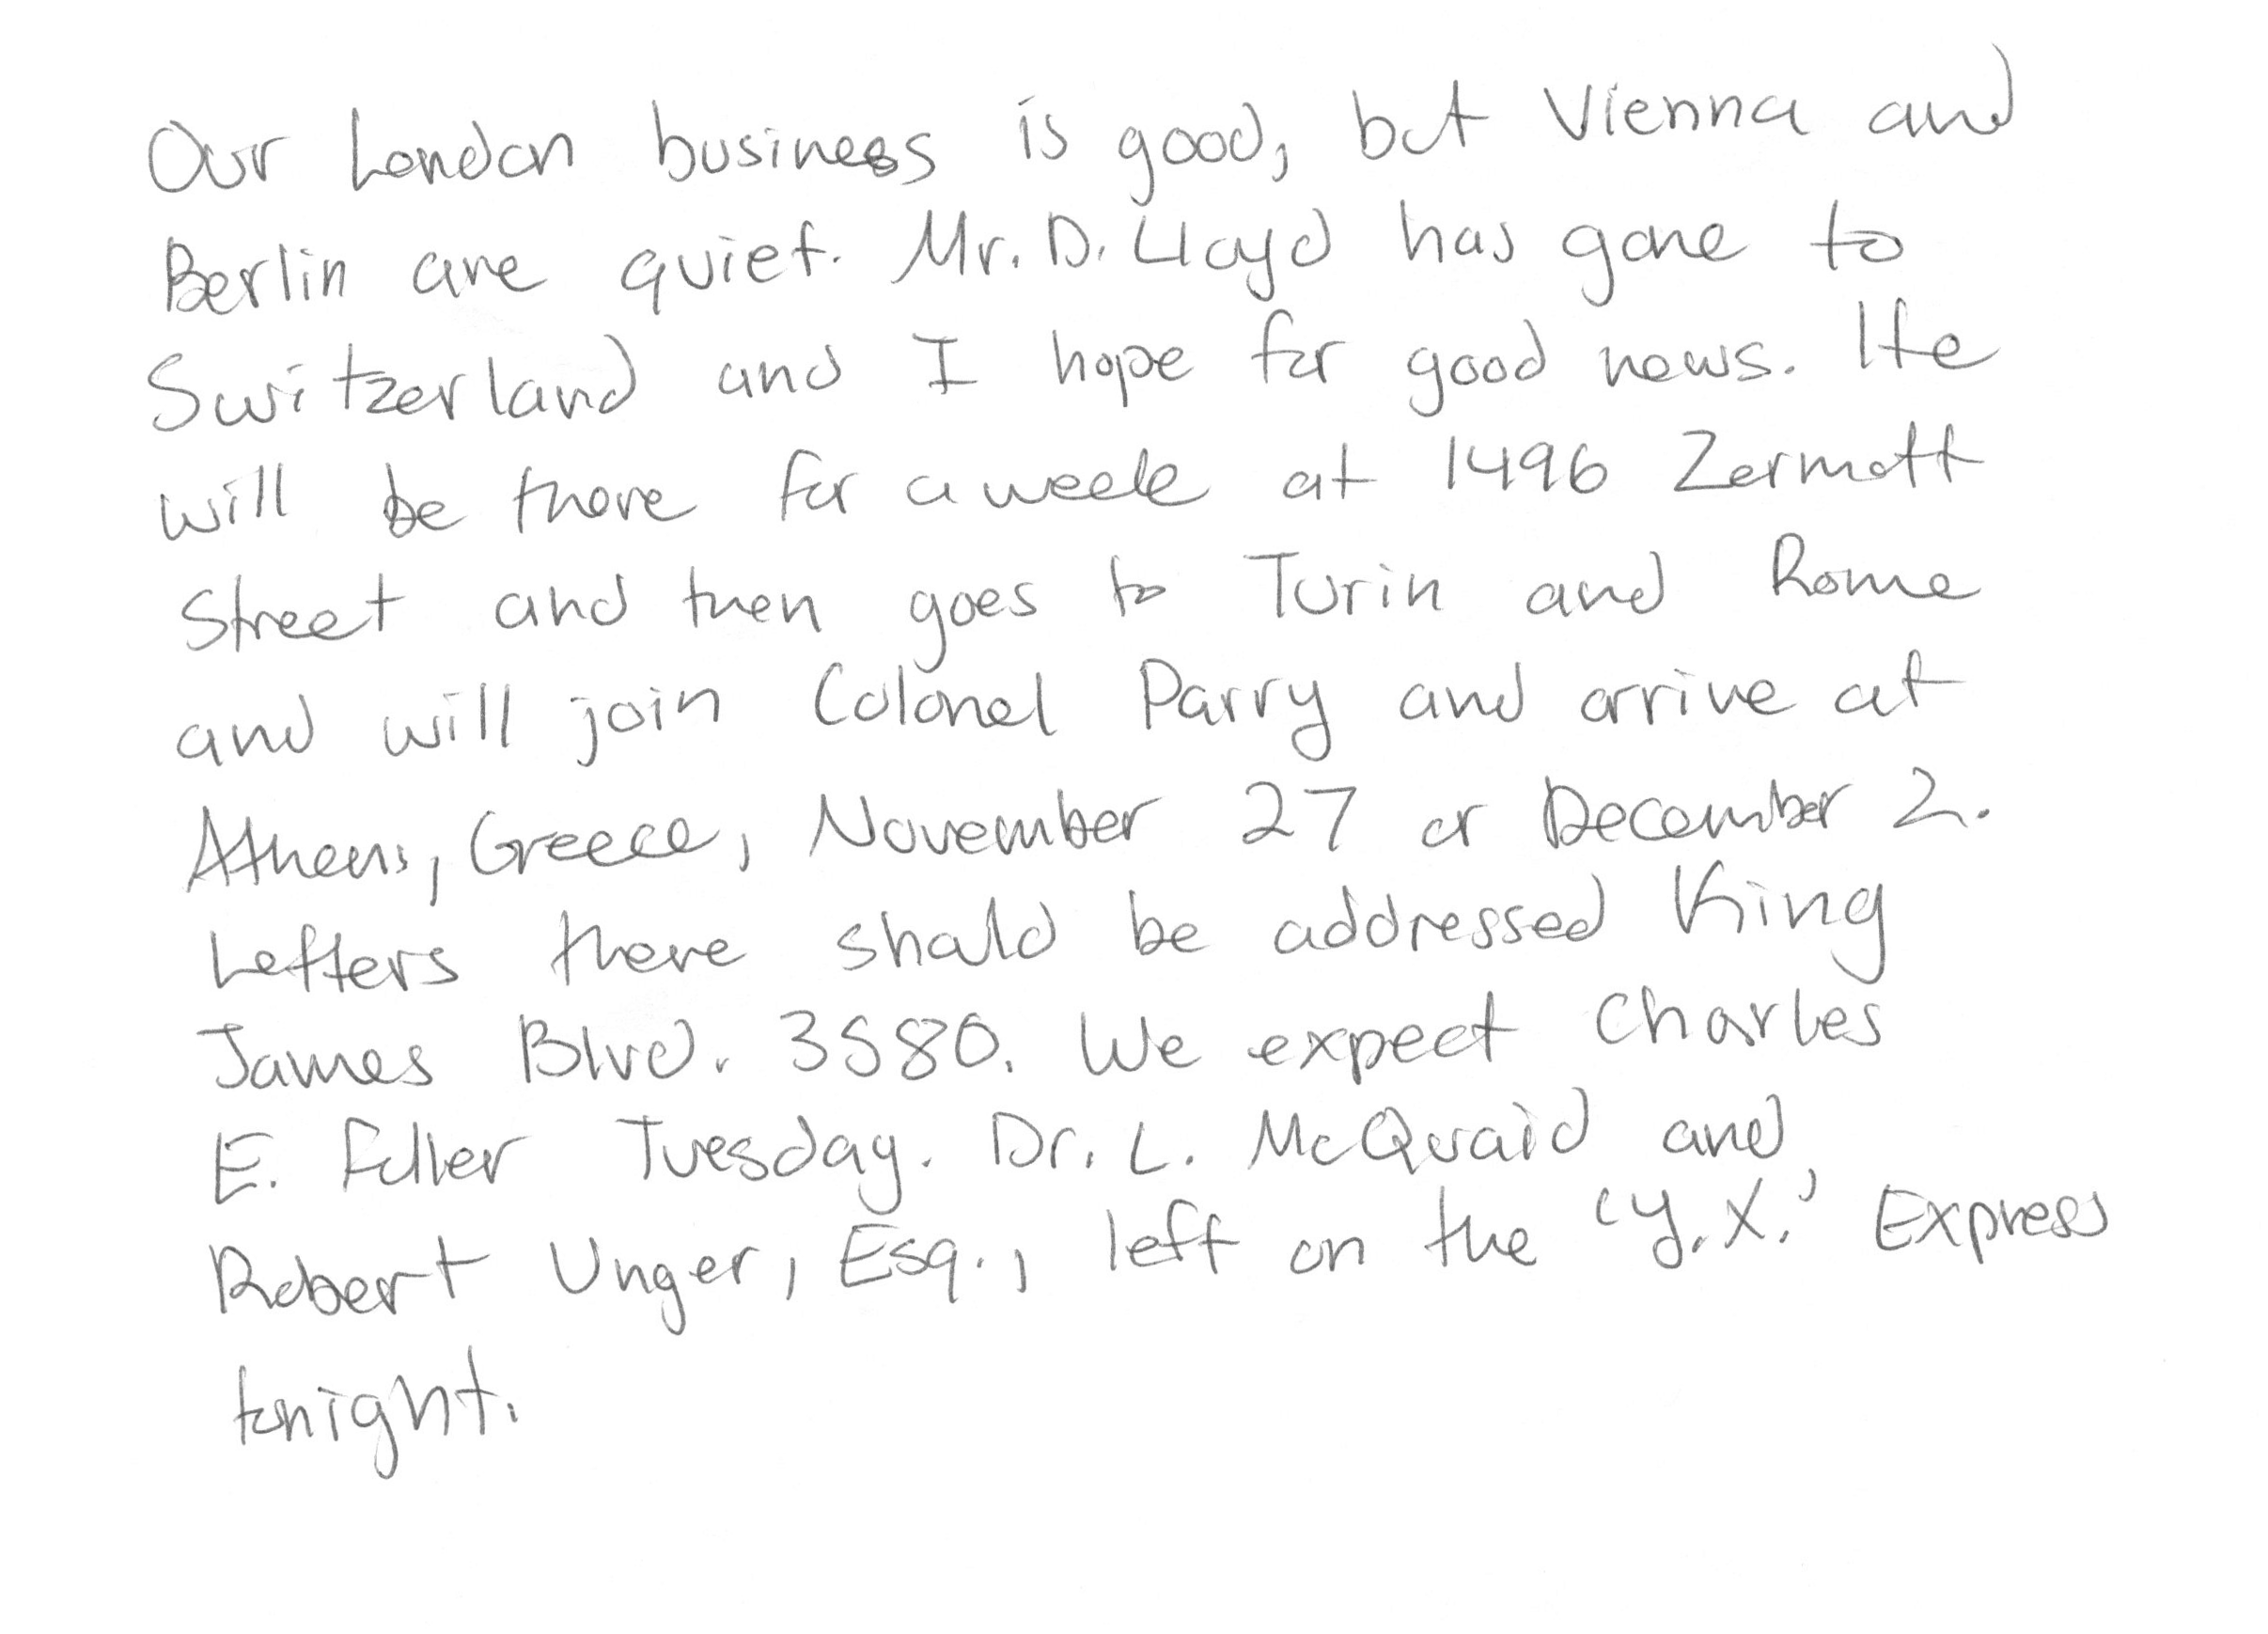 Our London business is good, but Vienna and
Berlin are quiet. Mr. D. Lloyd has gone to
Switzerland and I hope for good news. He
will be there for a week at 1496 Zermott
Street and then goes to Turin and Rome
and will join Colonel Parry and arrive at
Athens, Greece, November 27 or December 2.
Letters there should be addressed King
James Blvd. 3580. We expect Charles
E. Fuller Tuesday. Dr. L. McQuaid and
Robert Unger, Esq., left on the 'Y.X.' Express
tonight.